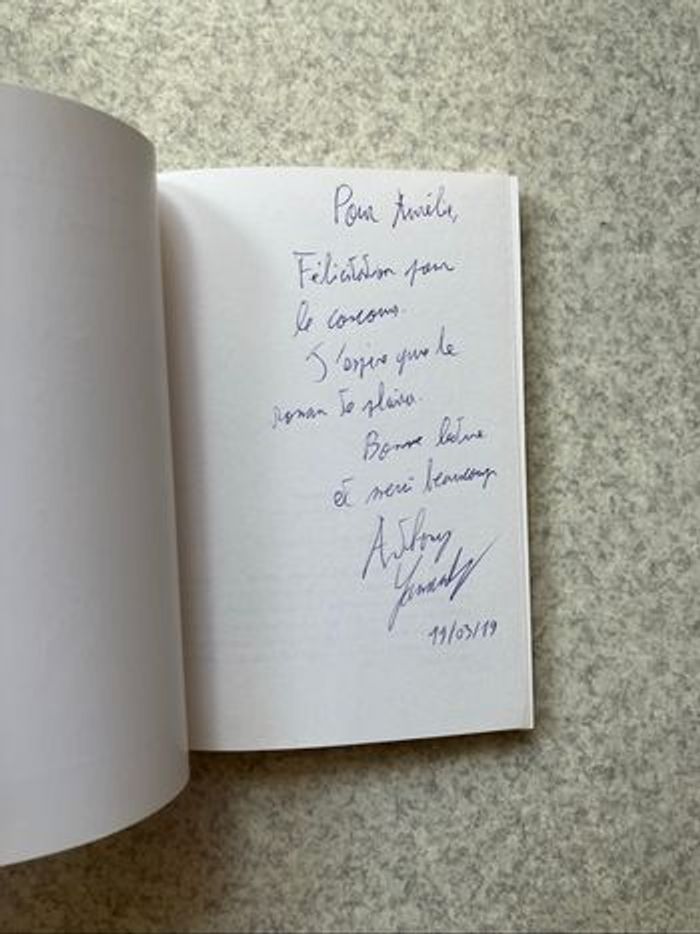 Pour Aurélie,
Félicitation pour
le concours.
J'espère que le
roman te plaira.
Bonne lecture
et merci beaucoup
Anthony
19/03/19